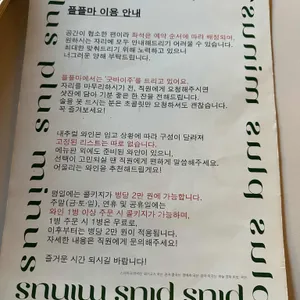 플플마 이용 안내
공간이 협소한 편이라 좌석은 예약 순서에 따라 배정되며,
원하시는 자리에 모두 안내해드리기 어려울 수 있습니다.
최대한 맞춰드리기 위해 노력하고 있으니
너그러운 양해 부탁드립니다.
플플마에서는 '굿바이주'를 드리고 있어요.
자리를 마무리하시기 전, 직원에게 요청해주시면
샷잔에 담아 기분 좋은 한 잔을 전해드립니다.
술을 못 드시는 분은 초콜릿만 요청하셔도 괜찮습니다.
꼭 즐겨보세요!
내추럴 와인은 입고 상황에 따라 구성이 달라져
고정된 리스트는 따로 없습니다.
메뉴판 외에도 준비된 와인이 있으니,
선택이 고민되실 땐 직원에게 편하게 말씀해주세요.
어울리는 와인을 추천해드릴게요!
평일에는 콜키지가 병당 2만 원에 가능합니다.
주말(금·토·일), 연휴 및 공휴일에는
와인 1병 이상 주문 시 콜키지가 가능하며,
1병 주문 시 1병은 무료로,
이후부터는 병당 2만 원이 적용됩니다.
자세한 내용은 직원에게 문의해주세요!
즐거운 시간 되시길 바랍니다!
plus plus minus
plus plus minus
plus plus minus